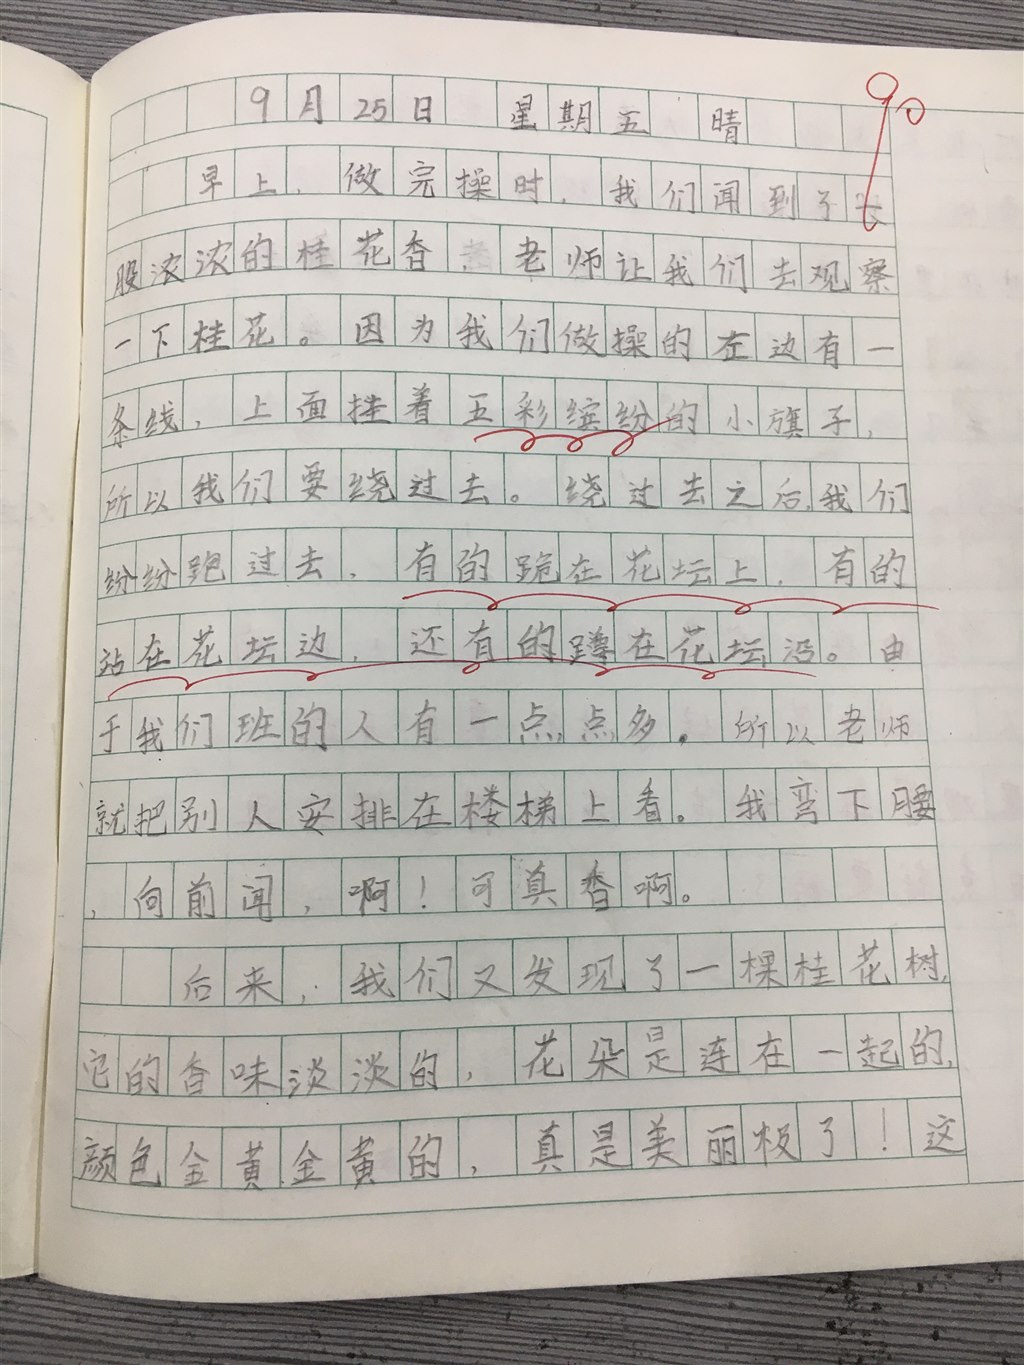 90
9月25日 星期五 晴
早上，做完操时，我们闻到了
股浓浓的桂花香，老师让我们去观察
一下桂花。因为我们做操的左边有一
条线，上面挂着五彩缤纷的小旗子，
所以我们要绕过去。绕过去之后，我们
纷纷跑过去，有的跪在花坛上，有的
站在花坛边，还有的蹲在花坛沿。由
于我们班的人有一点点多，所以老师
就把别人安排在楼梯上看。我弯下腰
，向前闻，啊！可真香啊。
后来，我们又发现了一棵桂花树，
它的香味淡淡的，花朵是连在一起的，
颜色金黄金黄的，真是美丽极了！这